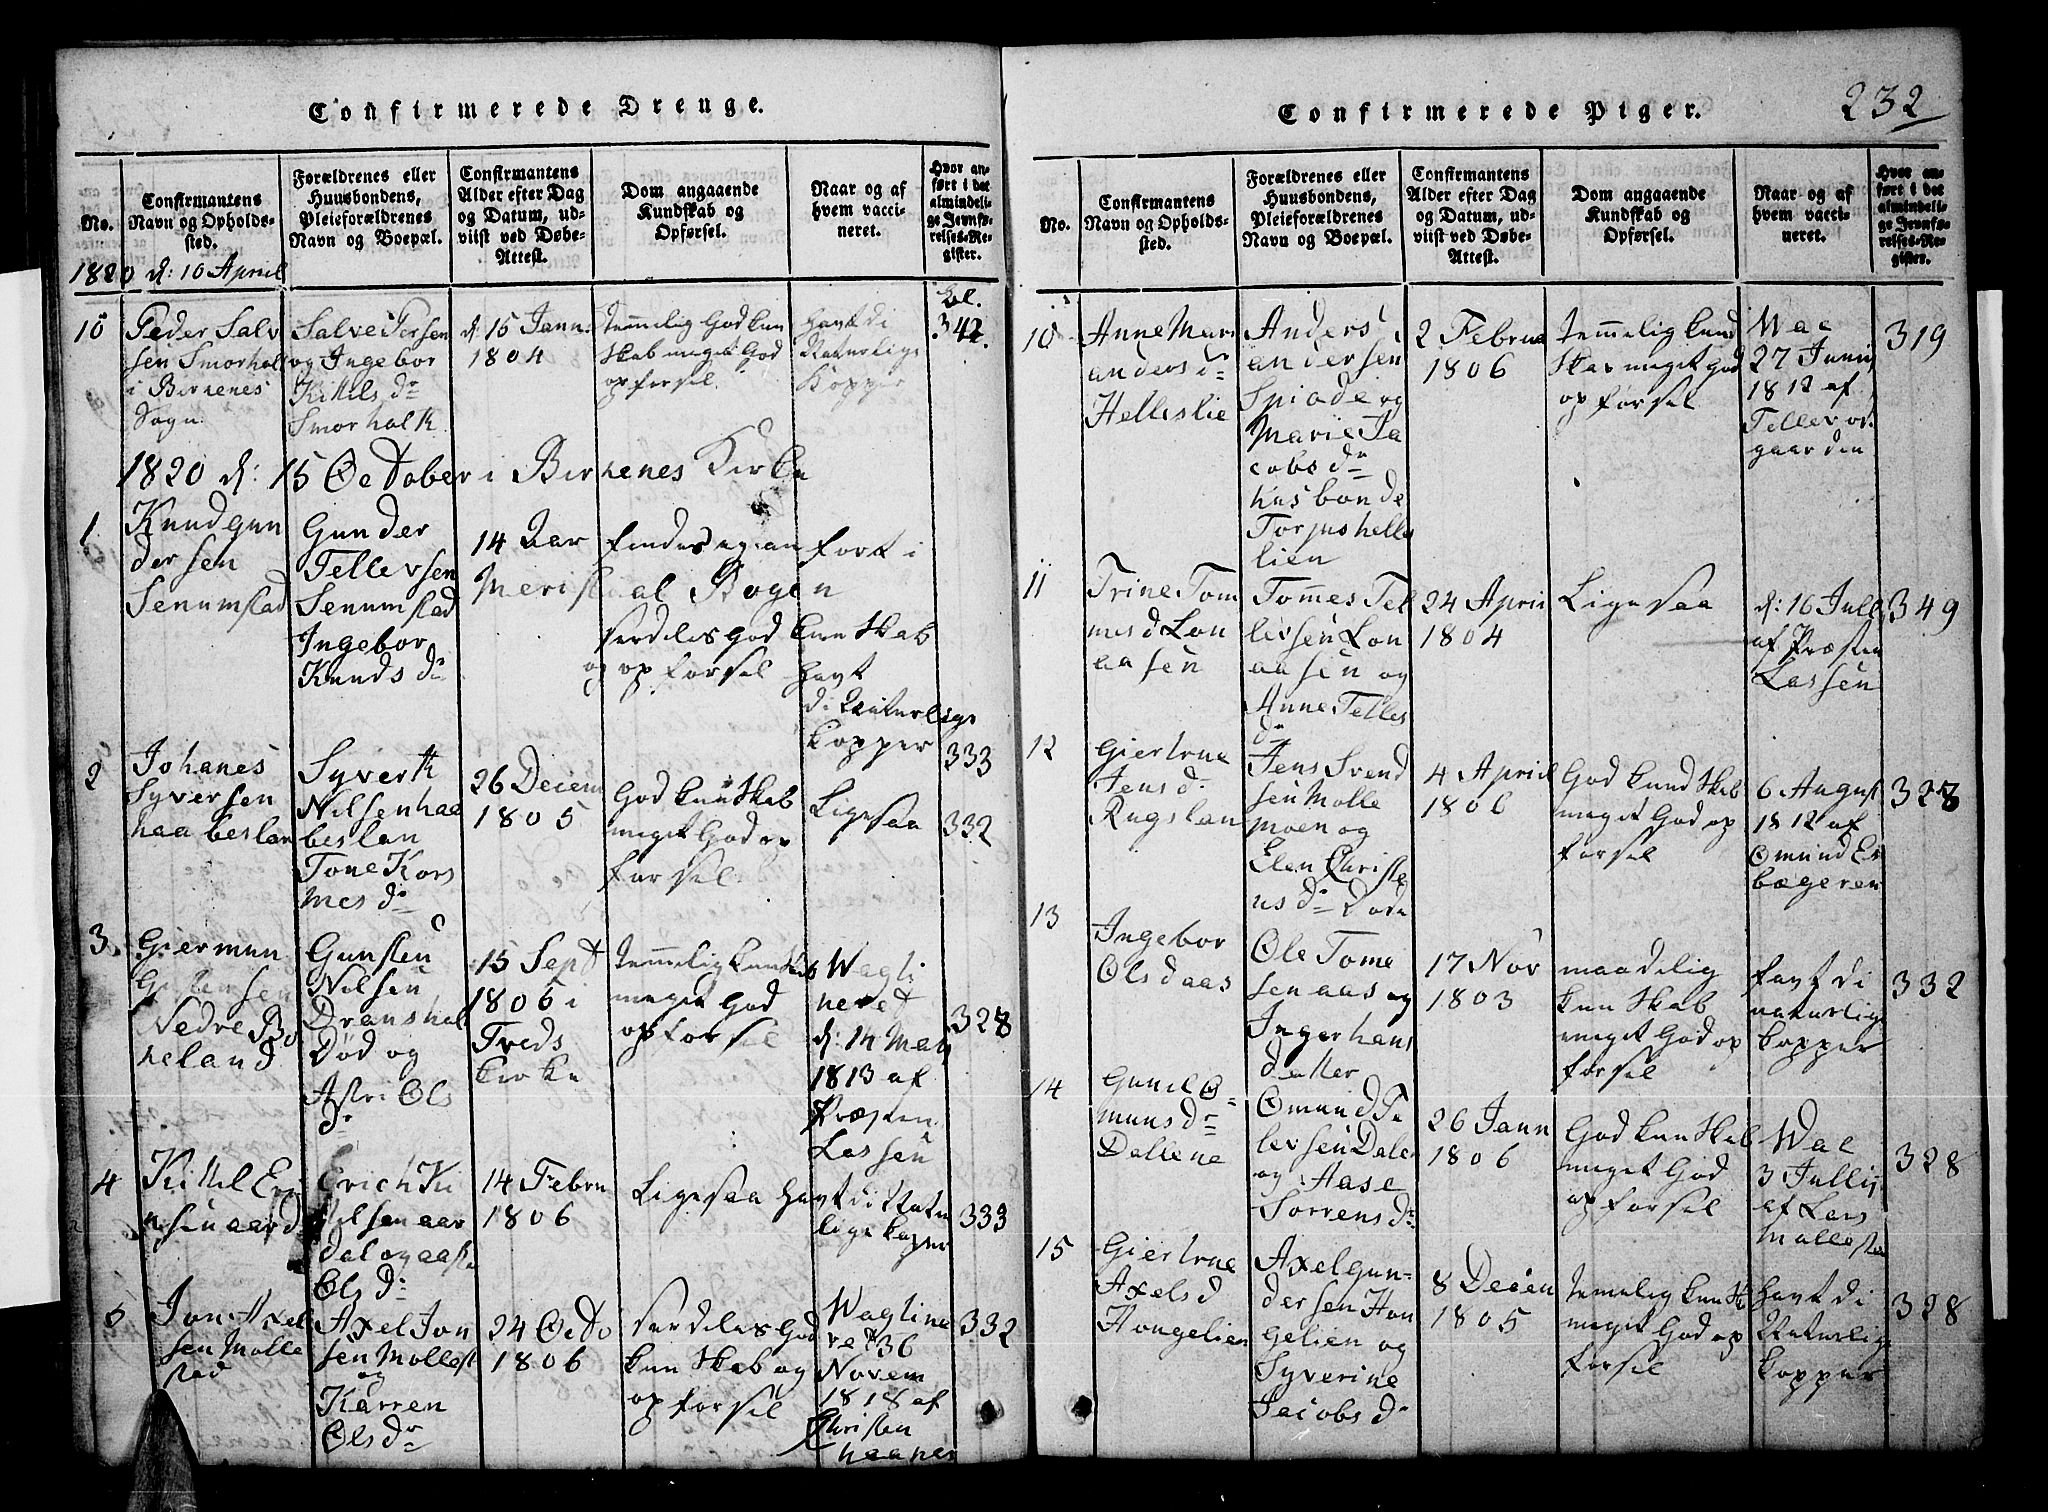 Confirmerede Drenge.
No.
Confirmantens
Navn og Opholds-
sted.
Forældrenes eller
Huusbondens,
Pleieforældrenes
Navn og Boepæl.
Confirmantens
Alder efter Dag
og Datum, ud-
viist ved Døbe-
Attest.
Dom angaaende
Kundskab og
Opførsel.
Naar og af
hvem vacci-
neret.
Hvor an-
ført i det
almindeli-
ge Jevnfø-
relses-Re-
gister.
1820 d: 10 April
10
Peder Salv
sen Smorhol
i Birrenes
Sogn
Salve Persen
og Ingebor
Kittels dr
Smorholt
d: 15 Jann:
1804
temmelig God kun
skab meget God
opforsel.
havt di
Naturlige
Kopper
bl.
342.
1820 d: 15 October i Birrenes Kirke
1
Knud gun
dersen
Senumstad
Gunder
Tellevsen
Senumstad
Ingebor
Knuds dr
14 Aar
findes
fort i
al Bogen
serdeles God kunskab
og opforsel
havt
di Naturlige
kopper
333
2
Johanes
Syversen
haabeslan
Syvert
Nilsen haa
beslan
Tone Kors
mes dr
26 Decem
1805
God kunskab
meget God op
forsel
Ligesaa
332
3.
Giermun
Nedre Bo
heland
Gunsten
Nilsen
Dranshol
Død og
Astri Ols
dr
15 Sept
1806 i
Freds
Kirke
temmelig kunskab
meget God
opforsel
Wagli
neret
d: 14 Mah
1813 af
Præsten
Lassen
328
4
Kittel Eri
sen aard
Erich Ki
telsen aar
dal og aaste
Ols dr
14 Febru
1806
Ligesaa
havt di Natu
lige koper
333
5
Jon Axel
sen Molle
stad
Axel Jon
sen Mollest
og
Karren
Ols dr
24 Octo
1806
serdeles God
kunskab og
opforsel
Wagline
ret 36
Novem
1818 af
Christen
haanes
332
Confirmerede Piger.
232
No.
Confirmantens
Navn og Opholds-
sted.
Forældrenes eller
Huusbondens,
Pleieforældrenes
Navn og Boepæl.
Confirmantens
Alder efter Dag
og Datum, ud-
viist ved Døbe-
Attest.
Dom angaaende
Kundskab og
Opførsel.
Naar og af
hvem vacci-
neret.
Hvor an-
ført i det
almindeli-
ge Jevnfø-
relses-Re-
gister.
10
Anne Mari
anders dr
Helleslie
Anders
andersen
Spiode og
Marie Ja
cobs dr
husbonde
Torjus helle
lien
2 Februa
1806
temmelig kund
skav meget God
opforsel
Wac
27 Junij
1812 af
Tellev os
gaarden
319
11
Trine Tom
mes d Lon
aasen
Tommes Tel
levsen Lon
aasen og
Anne Telles
dr
24 April
1804
Ligesaa
d: 16 Julli
af Præsten
Lassen
349
12
Giertrue
Jens d.
Rugslan
Jens Svend
sen Molle
moen og
Elen Christe
ns dr Døde
4 April
1806
God kundskab
meget God op
forsel
6 August
1812 af
Omund Es
bøgeren
328
13
Ingebor
Ols d aas
Ole Tome
sen aas og
Inger hans
datter
17 Nov
1803
maadelig
kunskab
meget God op
forsel
havt di
naturlige
kopper
332
14
Gunil O-
muns dr
Dallene
Omund Te
levsen Dalen
og Aase
Sorrens dr
26 Jann
1806
God kunskab
meget God
opforsel
Wac
3 Jullij
af Lars
Mollesta
328
15
Giertrue
Axels d
Hongelien
Axel gun-
dersen Hon
gelien og
Syverine
Jacobs dr
8 Decem
1805
temelig kunsk
meget God op
forsel
havt di
Naturlige
kopper
328